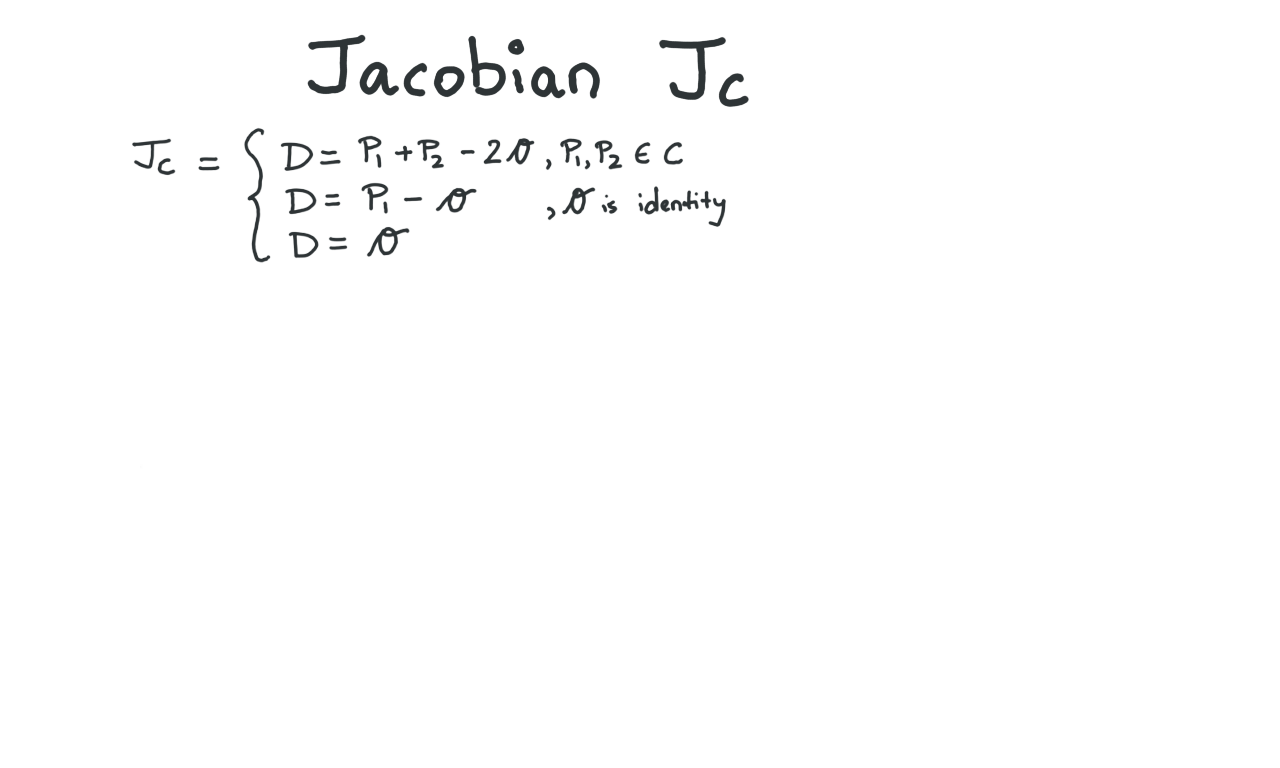 Jacobian Jc
Jc = { D = P₁ + P₂ - 2𝒪, P₁, P₂ ∈ C
D = P₁ - 𝒪 , 𝒪 is identity
D = 𝒪